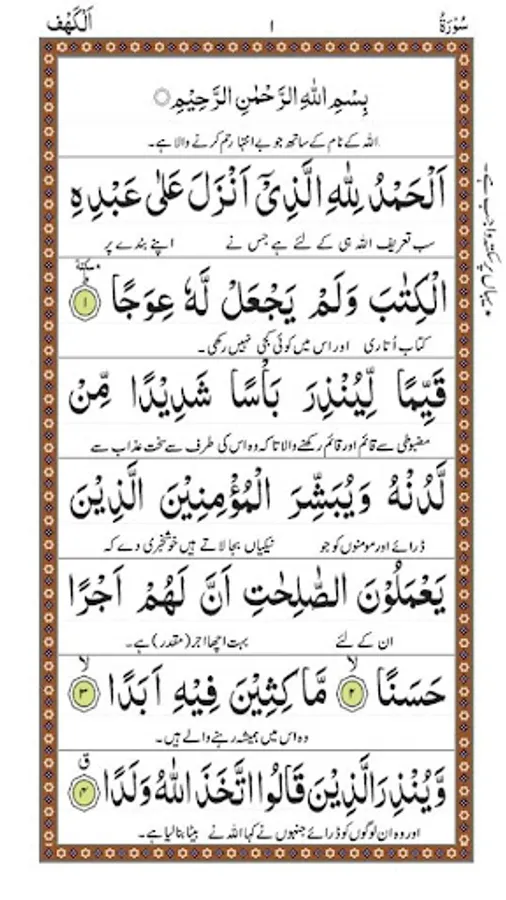 سُوْرَةُ ۱ اَلْكَهْف
بِسْمِ اللّٰهِ الرَّحْمٰنِ الرَّحِيْمِ
اللہ کے نام کے ساتھ جو بے انتہا رحم کرنے والا ہے۔
اَلْحَمْدُ لِلّٰهِ الَّذِىْٓ اَنْزَلَ عَلٰى عَبْدِهِ
سب تعریف اللہ ہی کے لئے ہے جس نے اپنے بندے پر
الْكِتٰبَ وَلَمْ يَجْعَلْ لَّهٗ عِوَجًا ۱
کتاب اُتاری اور اس میں کوئی کجی نہیں رکھی۔
قَيِّمًا لِّيُنْذِرَ بَاْسًا شَدِيْدًا مِّنْ
مضبوطی سے قائم اور قائم رکھنے والا تاکہ وہ اس کی طرف سے سخت عذاب سے
لَّدُنْهُ وَيُبَشِّرَ الْمُؤْمِنِيْنَ الَّذِيْنَ
ڈرائے اور مومنوں کو جو نیکیاں بجا لاتے ہیں خوشخبری دے کہ
يَعْمَلُوْنَ الصّٰلِحٰتِ اَنَّ لَهُمْ اَجْرًا
ان کے لئے بہت اچھا اجر (مقدر) ہے۔
حَسَنًا ۲ مَّاكِثِيْنَ فِيْهِ اَبَدًا ۳
وہ اس میں ہمیشہ رہنے والے ہیں۔
وَّيُنْذِرَ الَّذِيْنَ قَالُوا اتَّخَذَ اللّٰهُ وَلَدًا ۴
اور وہ ان لوگوں کو ڈرائے جنہوں نے کہا اللہ نے بیٹا بنا لیا ہے۔
• یہاں پر سکتہ واجب ہے۔